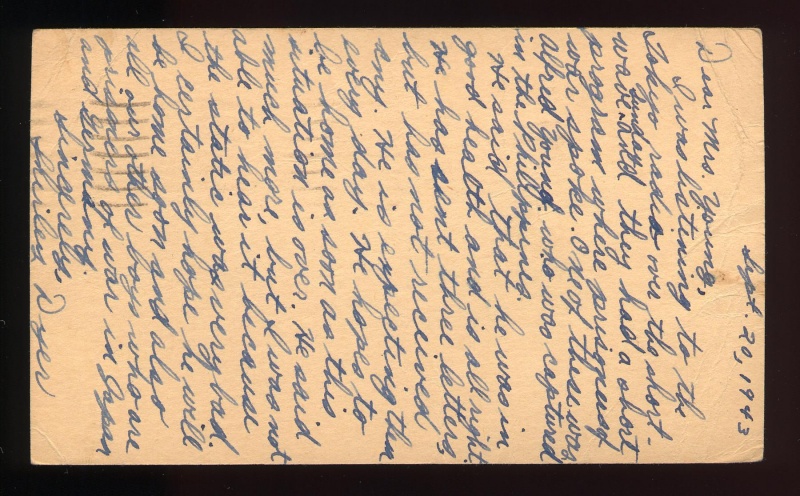 Sept. 20, 1943
Dear Mrs. Young,
I was listening to the
Tokyo radio over the short-
wave. Sunday and they had a short
program where prisoners of
war spoke. One of these was
Alfred Young who was captured
in the Philippines.
He said that he was in
good health and is all right.
He has sent three letters
but has not received
any. He is expecting them
every day. He hopes to
be home as soon as this
situation is over. He said
much more, but I was not
able to hear it because
the static was very bad.
I certainly hope he will
be home soon and also
all our other boys who are
prisoners of war in Japan
and Germany.
Sincerely,
Shirley Dyer